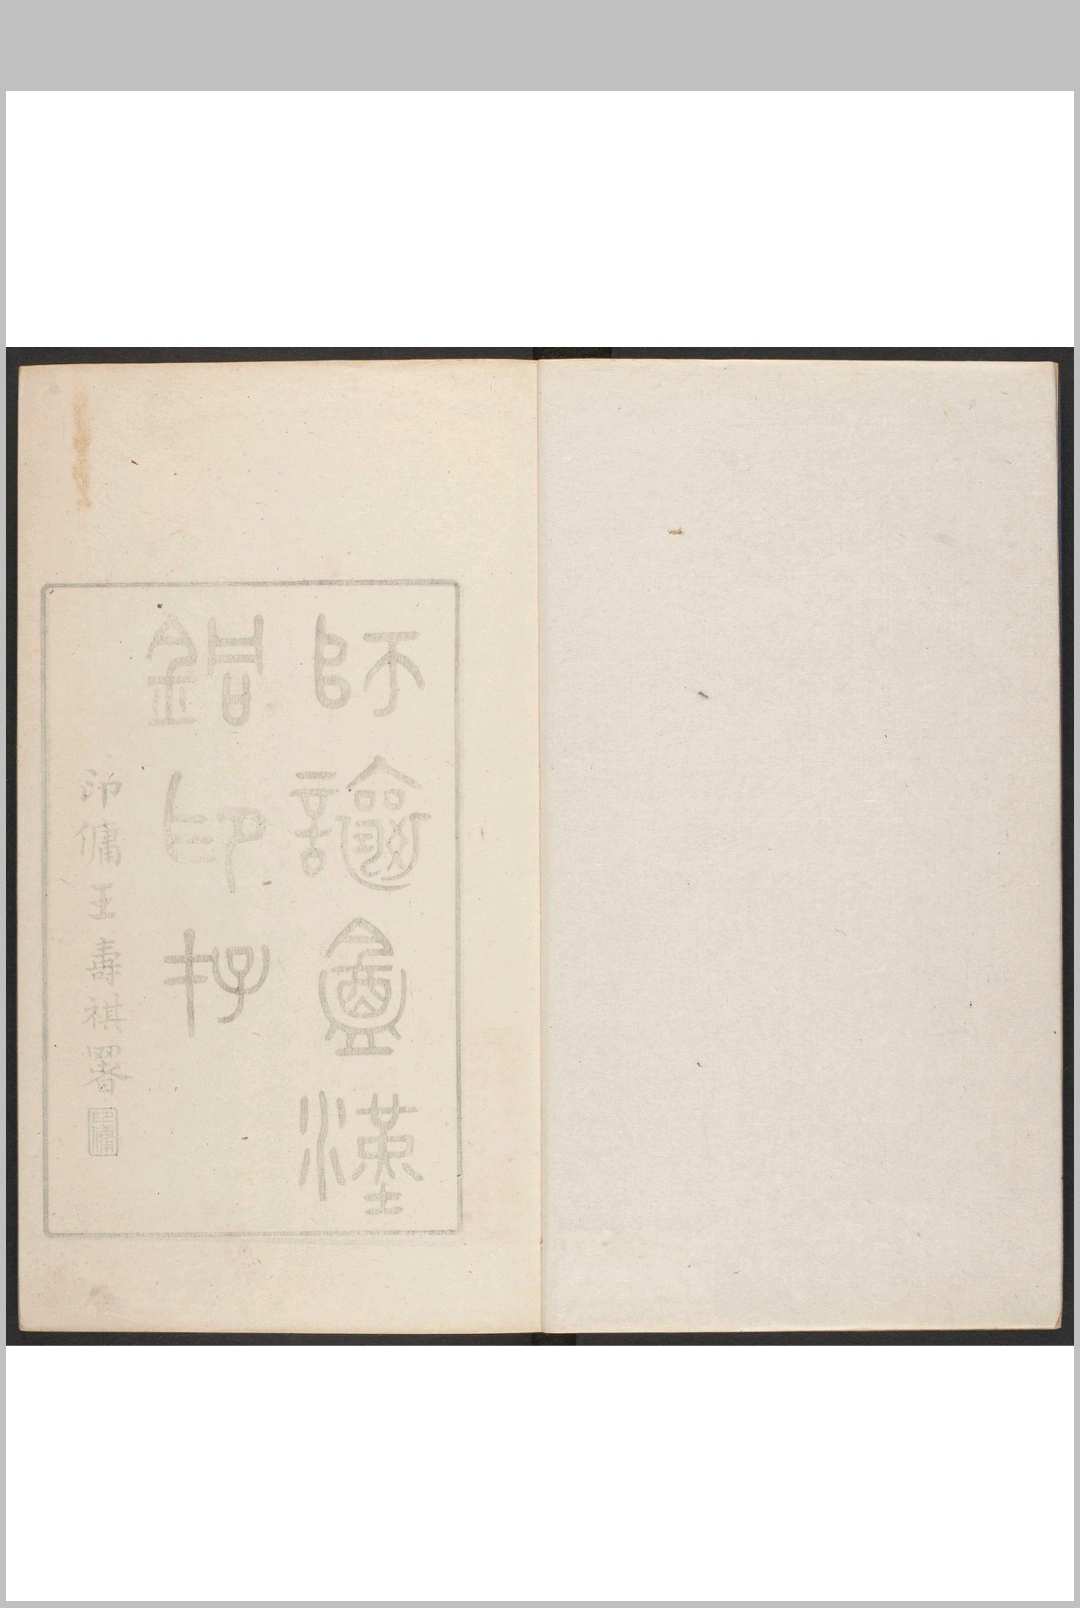 師讓盦漢
銅印存
印傭王壽祺署